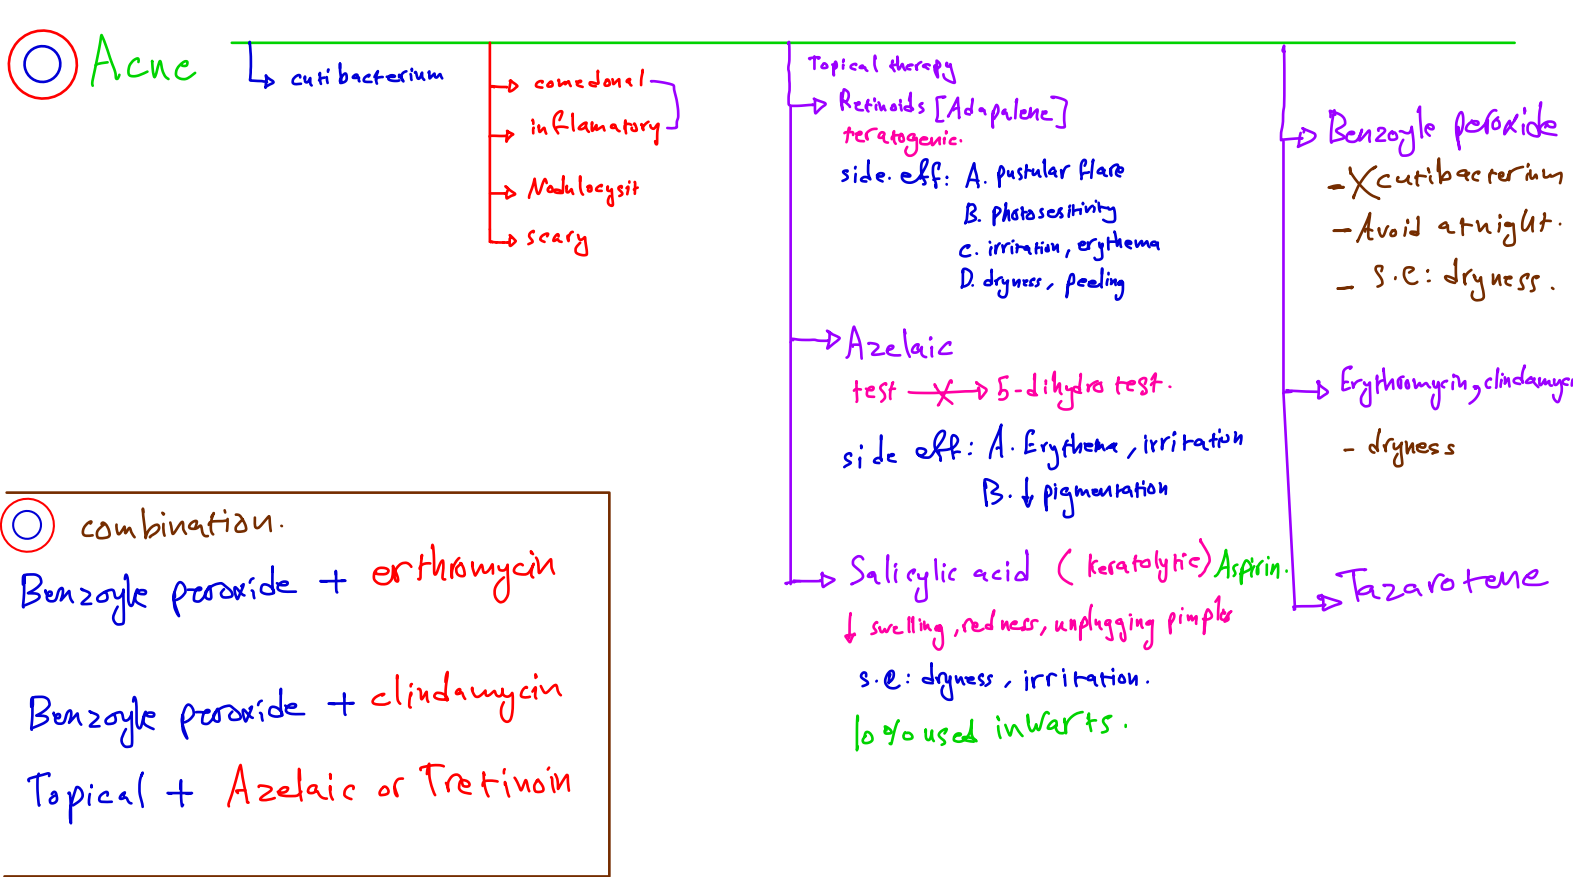 Acne
cutibacterium
comedonal
inflamatory
Nodulocysit
scary
Topical therapy
Retinoids [Adapalene]
teratogenic.
side. eff: A. pustular flare
B. photosesitivity
C. irritation, erythema
D. dryness, peeling
Azelaic
test → 5-dihydro test.
side eff: A. Erythema, irritation
B. ↓ pigmentation
Salicylic acid (keratolytic) Aspirin.
↓ swelling, redness, unplugging pimples
s.e: dryness, irritation.
10% used in warts.
Benzoyle peroxide
- X cutibacterium
- Avoid at night.
- S.e: dryness.
Erythromycin, clindamyci
- dryness
Tazarotene
combination.
Benzoyle peroxide + erthromycin
Benzoyle peroxide + clindamycin
Topical + Azelaic or Tretinoin